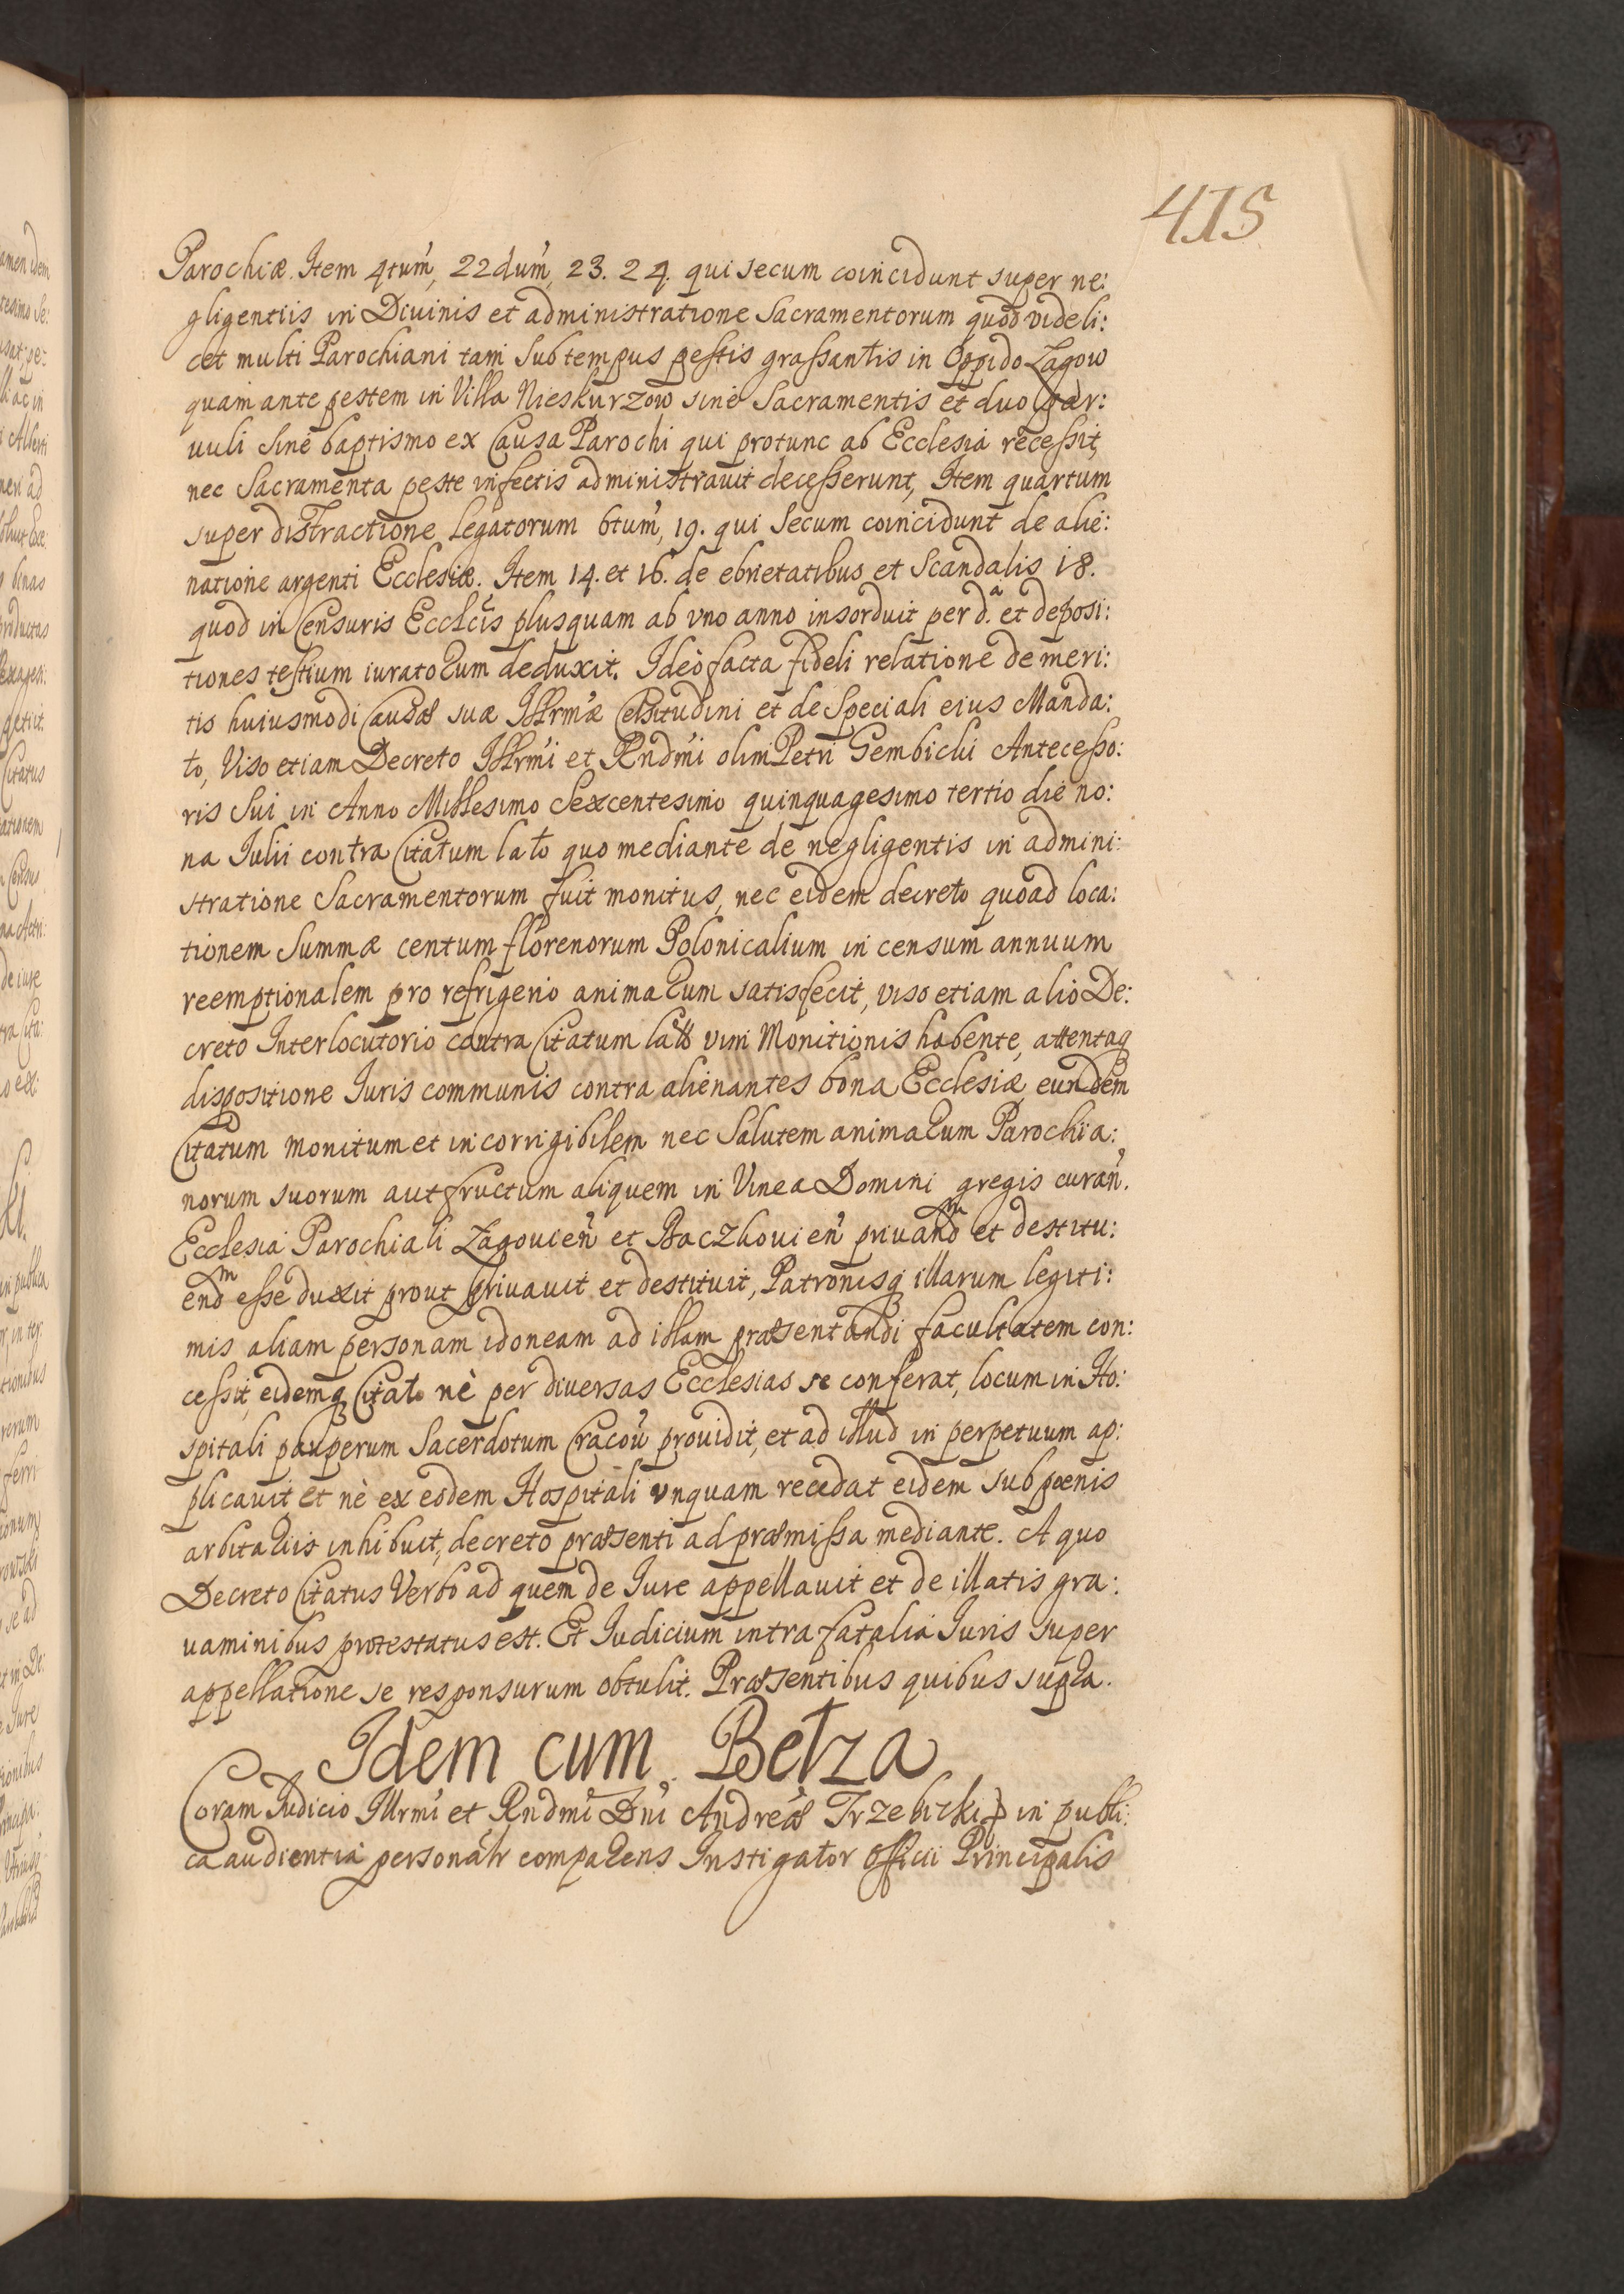 415
Parochiæ. Item 4tum, 22dum, 23. 24. qui secum coincidunt super ne:
gligentiis in Diuinis et administratione Sacramentorum quod videli:
cet multi Parochiani tam sub tempus pestis grassantis in Oppido Łagow
quam ante pestem in Villa Nieskurzow sine Sacramentis et duo par:
uuli sine baptismo ex Causa Parochi qui protunc ab Ecclesia recessit,
nec Sacramenta peste infectis administrauit decesserunt, Item quartum
super distractione legatorum 6tum, 19. qui secum coincidunt de alie:
natione argenti Ecclesiæ. Item 14. et 16. de ebrietatibus et Scandalis 18.
quod in Censuris Ecclcis plusquam ab vno anno insorduit per d.a et deposi:
tiones testium iuratorum deduxit. Ideo facta fideli relatione de meri:
tis huiusmodi Causæ suæ Illrmæ Celsitudini et de Speciali eius Manda:
to, Viso etiam Decreto Illrmi et Rndmi olim Petri Gembicki Antecesso:
ris Sui in Anno Millesimo Sexcentesimo quinquagesimo tertio die no:
na Iulii contra Citatum lato quo mediante de negligentis in admini:
stratione Sacramentorum fuit monitus, nec eidem decreto quoad loca:
tionem Summæ centum florenorum Polonicalium in censum annuum
reemptionalem pro refrigerio animarum satisfecit, viso etiam alio De:
creto Interlocutorio contra Citatum lato vim Monitionis habente, attentaq
dispositione Iuris communis contra alienantes bona Ecclesiæ eundem
Citatum monitum et incorrigibilem nec Salutem animarum Parochia:
norum suorum aut fructum aliquem in Vinea Domini gregis curan.
Ecclesia Parochiali Łagouien et Baczkouien priuandm et destitu:
endm esse duxit prout priuauit et destituit, Patronisq illarum legiti:
mis aliam personam idoneam ad illam præsentandi facultatem con:
cessit, eidemq Citato nè per diuersas Ecclesias se conferat, locum in Ho:
spitali pauperum Sacerdotum Cracou prouidit, et ad illud in perpetuum ap:
plicauit et nè ex eodem Hospitali vnquam recedat eidem sub pœnis
arbitrariis inhibuit, decreto præsenti ad præmissa mediante. A quo
Decreto Citatus Verbo ad quem de Iure appellauit et de illatis gra:
uaminibus protestatus est. Et Iudicium intra fatalia Iuris super
appellatione se responsurum obtulit. Præsentibus quibus supra.
Idem cum Betza
Coram Iudicio Illrmi et Rndmi Dni Andreæ Trzebicki p in publi:
ca audientia personalr comparens Instigator Officii Principalis